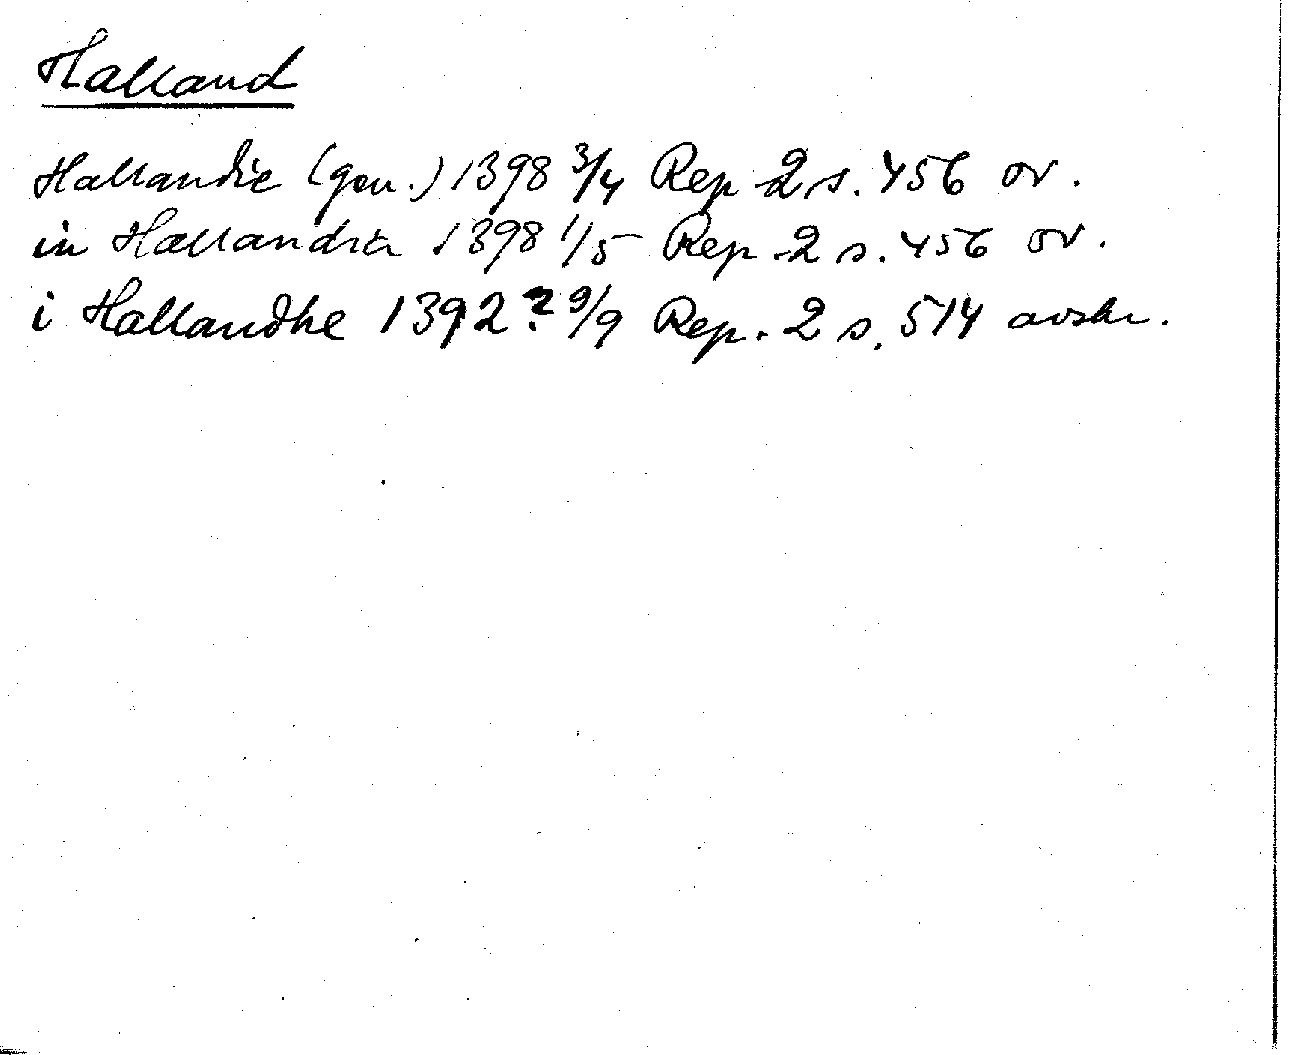 Halland
Hallandie (gen.) 1398 3/4 Rep 2 s. 456 or.
in Hallandia 1398 1/5 Rep 2 s. 456 or.
i Hallandhe 1392? 9/9 Rep. 2 s. 514 avskr.